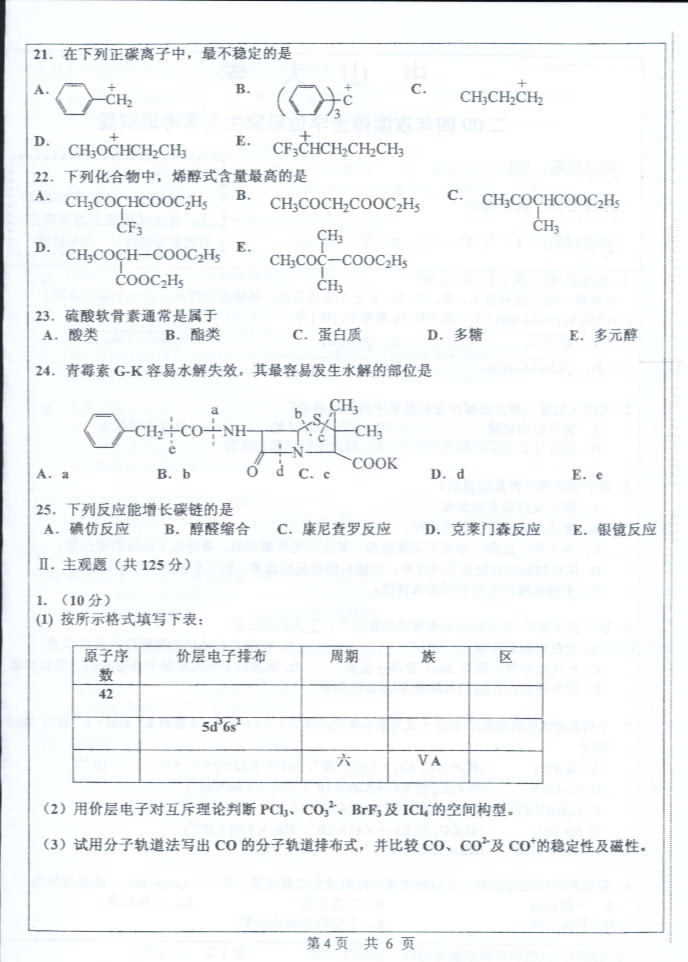 21．在下列正碳离子中，最不稳定的是
A. CH₂⁺
B. ( )₂C⁺
C. CH₃CH₂CH₂⁺
D. CH₃OC⁺HCH₂CH₃
E. CF₃C⁺HCH₂CH₂CH₃
22．下列化合物中，烯醇式含量最高的是
A. CH₃COCHCOOC₂H₅
CF₃
B. CH₃COCH₂COOC₂H₅
C. CH₃COCHCOOC₂H₅
CH₃
D. CH₃COCH—COOC₂H₅
COOC₂H₅
E. CH₃
CH₃COC—COOC₂H₅
CH₃
23．硫酸软骨素通常是属于
A．酸类 B．酯类 C．蛋白质 D．多糖 E．多元醇
24．青霉素 G-K 容易水解失效，其最容易发生水解的部位是
a b CH₃
CH₂ CO NH S CH₃
e c
N
O d COOK
A．a B．b C．c D．d E．e
25．下列反应能增长碳链的是
A．碘仿反应 B．醇醛缩合 C．康尼查罗反应 D．克莱门森反应 E．银镜反应
Ⅱ．主观题（共 125 分）
1．（10 分）
(1) 按所示格式填写下表：
原子序数 价层电子排布 周期 族 区
42
5d³6s²
六 ⅤA
（2）用价层电子对互斥理论判断 PCl₃、CO₃²⁻、BrF₃ 及 ICl₄⁻的空间构型。
（3）试用分子轨道法写出 CO 的分子轨道排布式，并比较 CO、CO²⁻及 CO⁺的稳定性及磁性。
第 4 页 共 6 页